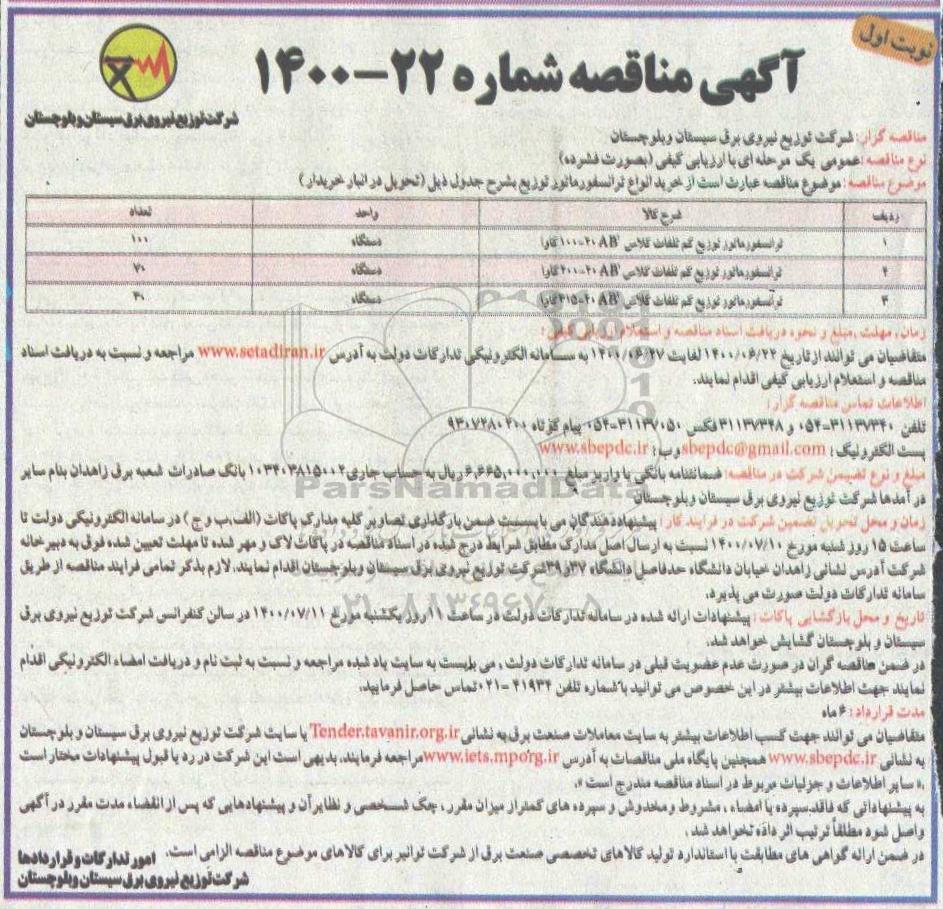 نوبت اول
آگهی مناقصه شماره ۲۲-۱۴۰۰
شرکت توزیع نیروی برق سیستان و بلوچستان
مناقصه گزار: شرکت توزیع نیروی برق سیستان وبلوچستان
نوع مناقصه: عمومی یک مرحله ای با ارزیابی کیفی (بصورت فشرده)
موضوع مناقصه: موضوع مناقصه عبارت است از خرید انواع ترانسفورماتور توزیع بشرح جدول ذیل (تحویل در انبار خریدار)
ردیف شرح کالا واحد تعداد
۱ ترانسفورماتور توزیع کم تلفات کلاس دستگاه ۱۰۰
۲ ترانسفورماتور توزیع کم تلفات کلاس دستگاه ۷۰
۳ ترانسفورماتور توزیع کم تلفات کلاس دستگاه ۳۰
زمان، مهلت ،مبلغ و نحوه دریافت اسناد مناقصه و استعلام ارزیابی کیفی:
متقاضیان می توانند ازتاریخ ۱۴۰۰/۰۶/۲۲ لغایت ۱۴۰۰/۰۶/۲۷ به سامانه الکترونیکی تدارکات دولت به آدرس www.setadiran.ir مراجعه و نسبت به دریافت اسناد
مناقصه و استعلام ارزیابی کیفی اقدام نمایند.
اطلاعات تماس مناقصه گزار:
تلفن ۳۱۱۳۷۳۴۰-۰۵۴ و ۳۱۱۳۷۳۴۸ فکس ۳۱۱۳۷۰۵۰-۰۵۴ پیام کوتاه ۹۳۰۷۲۸۰۲۰۰
پست الکترونیک: sbepdc@gmail.com وب: www.sbepdc.ir
مبلغ و نوع تضمین شرکت در مناقصه: ضمانتنامه بانکی یا واریز مبلغ ۶,۶۶۵,۰۰۰,۰۰۰ ریال به حساب جاری ۱۰۳۴۰۳۸۱۵۰۰۲ بانک صادرات شعبه برق زاهدان بنام سایر
در آمدها شرکت توزیع نیروی برق سیستان وبلوچستان
زمان و محل تحویل تضمین شرکت در فرایند کار: پیشنهاددهندگان می بایست ضمن بارگذاری تصاویر کلیه مدارک پاکات (الف،ب و ج) در سامانه الکترونیکی دولت تا
ساعت ۱۵ روز شنبه مورخ ۱۴۰۰/۰۷/۱۰ نسبت به ارسال اصل مدارک مطابق شرایط درج شده در اسناد مناقصه در پاکات لاک و مهر شده تا مهلت تعیین شده فوق به دبیرخانه
شرکت آدرس نشانی زاهدان خیابان دانشگاه حدفاصل دانشگاه ۳۷و۳۹ شرکت توزیع نیروی برق سیستان وبلوچستان اقدام نمایند. لازم بذکر تمامی فرایند مناقصه از طریق
سامانه تدارکات دولت صورت می پذیرد.
تاریخ و محل بازگشایی پاکات: پیشنهادات ارائه شده در سامانه تدارکات دولت در ساعت ۱۱ روز یکشنبه مورخ ۱۴۰۰/۰۷/۱۱ در سالن کنفرانس شرکت توزیع نیروی برق
سیستان و بلوچستان گشایش خواهد شد.
در ضمن مناقصه گران در صورت عدم عضویت قبلی در سامانه تدارکات دولت، می بایست به سایت یاد شده مراجعه و نسبت به ثبت نام و دریافت امضاء الکترونیکی اقدام
نمایند جهت اطلاعات بیشتر در این خصوص می توانید با شماره تلفن ۴۱۹۳۴-۰۲۱ تماس حاصل فرمایید.
مدت قرارداد: ۶ ماه
متقاضیان می توانند جهت کسب اطلاعات بیشتر به سایت معاملات صنعت برق به نشانی Tender.tavanir.org.ir یا سایت شرکت توزیع نیروی برق سیستان و بلوچستان
به نشانی www.sbepdc.ir همچنین پایگاه ملی مناقصات به آدرس www.iets.mporg.ir مراجعه فرمایند. بدیهی است این شرکت در رد یا قبول پیشنهادات مختار است
.« سایر اطلاعات و جزئیات مربوط در اسناد مناقصه مندرج است ».
به پیشنهاداتی که فاقد سپرده یا امضاء ، مشروط و مخدوش و سپرده های کمتر از میزان مقرر ، چک شخصی و نظایر آن و پیشنهادهایی که پس از انقضاء مدت مقرر در آگهی
واصل شود مطلقاً ترتیب اثر داده نخواهد شد .
در ضمن ارائه گواهی های مطابقت با استاندارد تولید کالاهای تخصصی صنعت برق از شرکت توانیر برای کالاهای موضوع مناقصه الزامی است.
امور تدارکات و قراردادها
شرکت توزیع نیروی برق سیستان وبلوچستان
ParsNamadData